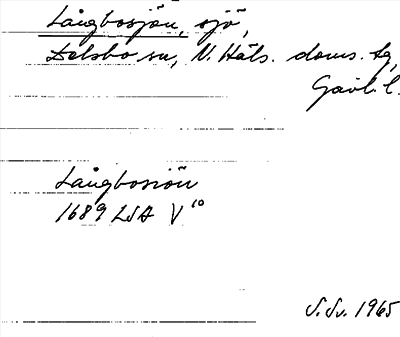 Långbosjön, sjö,
Delsbo sn, N. Häls. doms. tg,
Gävl. l.
Långbosiön
1689 LSA V 10
S. Sv. 1965